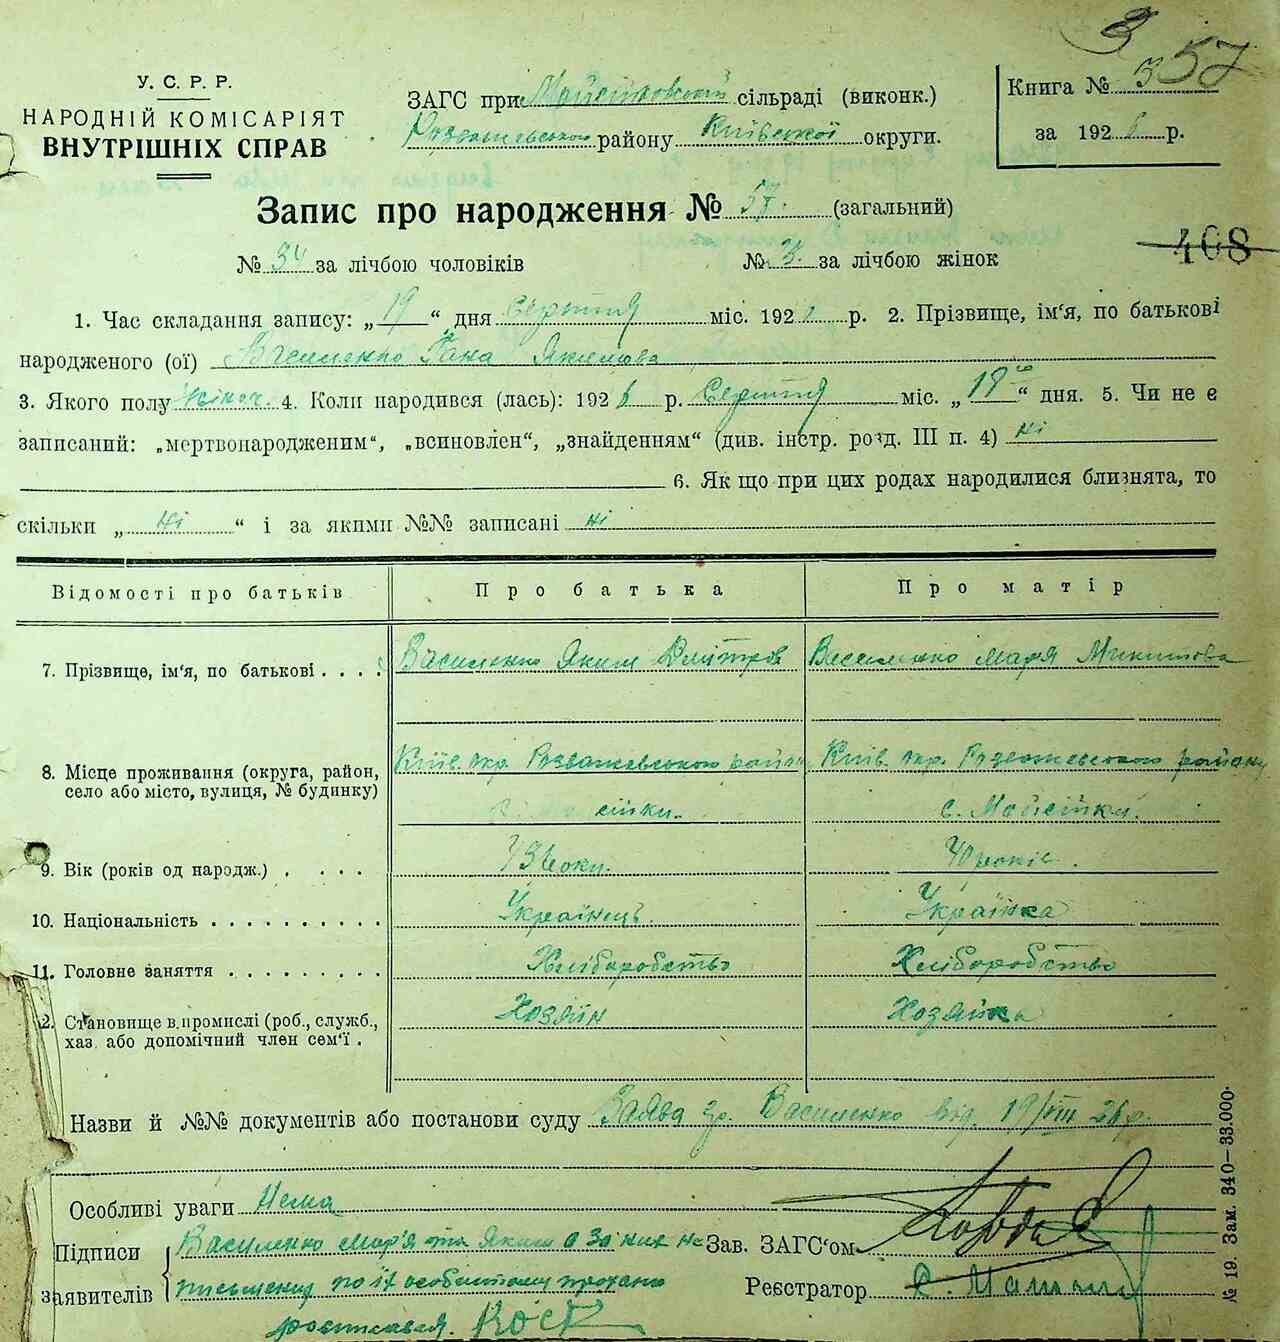 3 57
У. С. Р. Р.
НАРОДНІЙ КОМІСАРІЯТ
ВНУТРІШНІХ СПРАВ
ЗАГС при Мойсійовській сільраді (виконк.)
Розважевського району Київської округи.
Книга № 3
за 1926 р.
Запис про народження № 57. (загальний)
408
№ 34 за лічбою чоловіків № за лічбою жінок
1. Час складання запису: „19“ дня Серпня міс. 192 р. 2. Прізвище, ім‘я, по батькові
народженого (ої) Василенко Гана Якимова
3. Якого полу жіноч. 4. Коли народився (лась): 1926 р. Серпня міс. „18“ дня. 5. Чи не є
записаний: „мертвонародженим“, „всиновлен“, „знайденням“ (див. інстр. розд. III п. 4) ні
6. Як що при цих родах народилися близнята, то
скільки „ні“ і за якими №№ записані ні
Відомості про батьків Про батька Про матір
7. Прізвище, ім‘я, по батькові . . . . Василенко Яким Дмитров Василенко Мар'я Микитова
8. Місце проживання (округа, район, село або місто, вулиця, № будинку) Київ. окр. Розважевського район Київ. окр. Розважевського району
сійки. с. Мойсійки.
9. Вік (років од народж.) . . . . 43 роки. 40 років.
10. Національність . . . . . . . . . . Українець. Українка
11. Головне заняття . . . . . . . . . Хліборобство Хліборобство
2. Становище в промислі (роб., служб., Хозяїн Хозяйка
хаз. або допомічний член сем‘ї .
Назви й №№ документів або постанови суду Заява гр. Василенко від. 19/VIII 26 р.
Особливі уваги Нема
Підписи заявителів Василенко Мар'я та Яким а за них не
письмених по їх особистому проханню
росписався.
Зав. ЗАГС‘ом
Реєстратор
№ 19. Зам. 340–33.000.